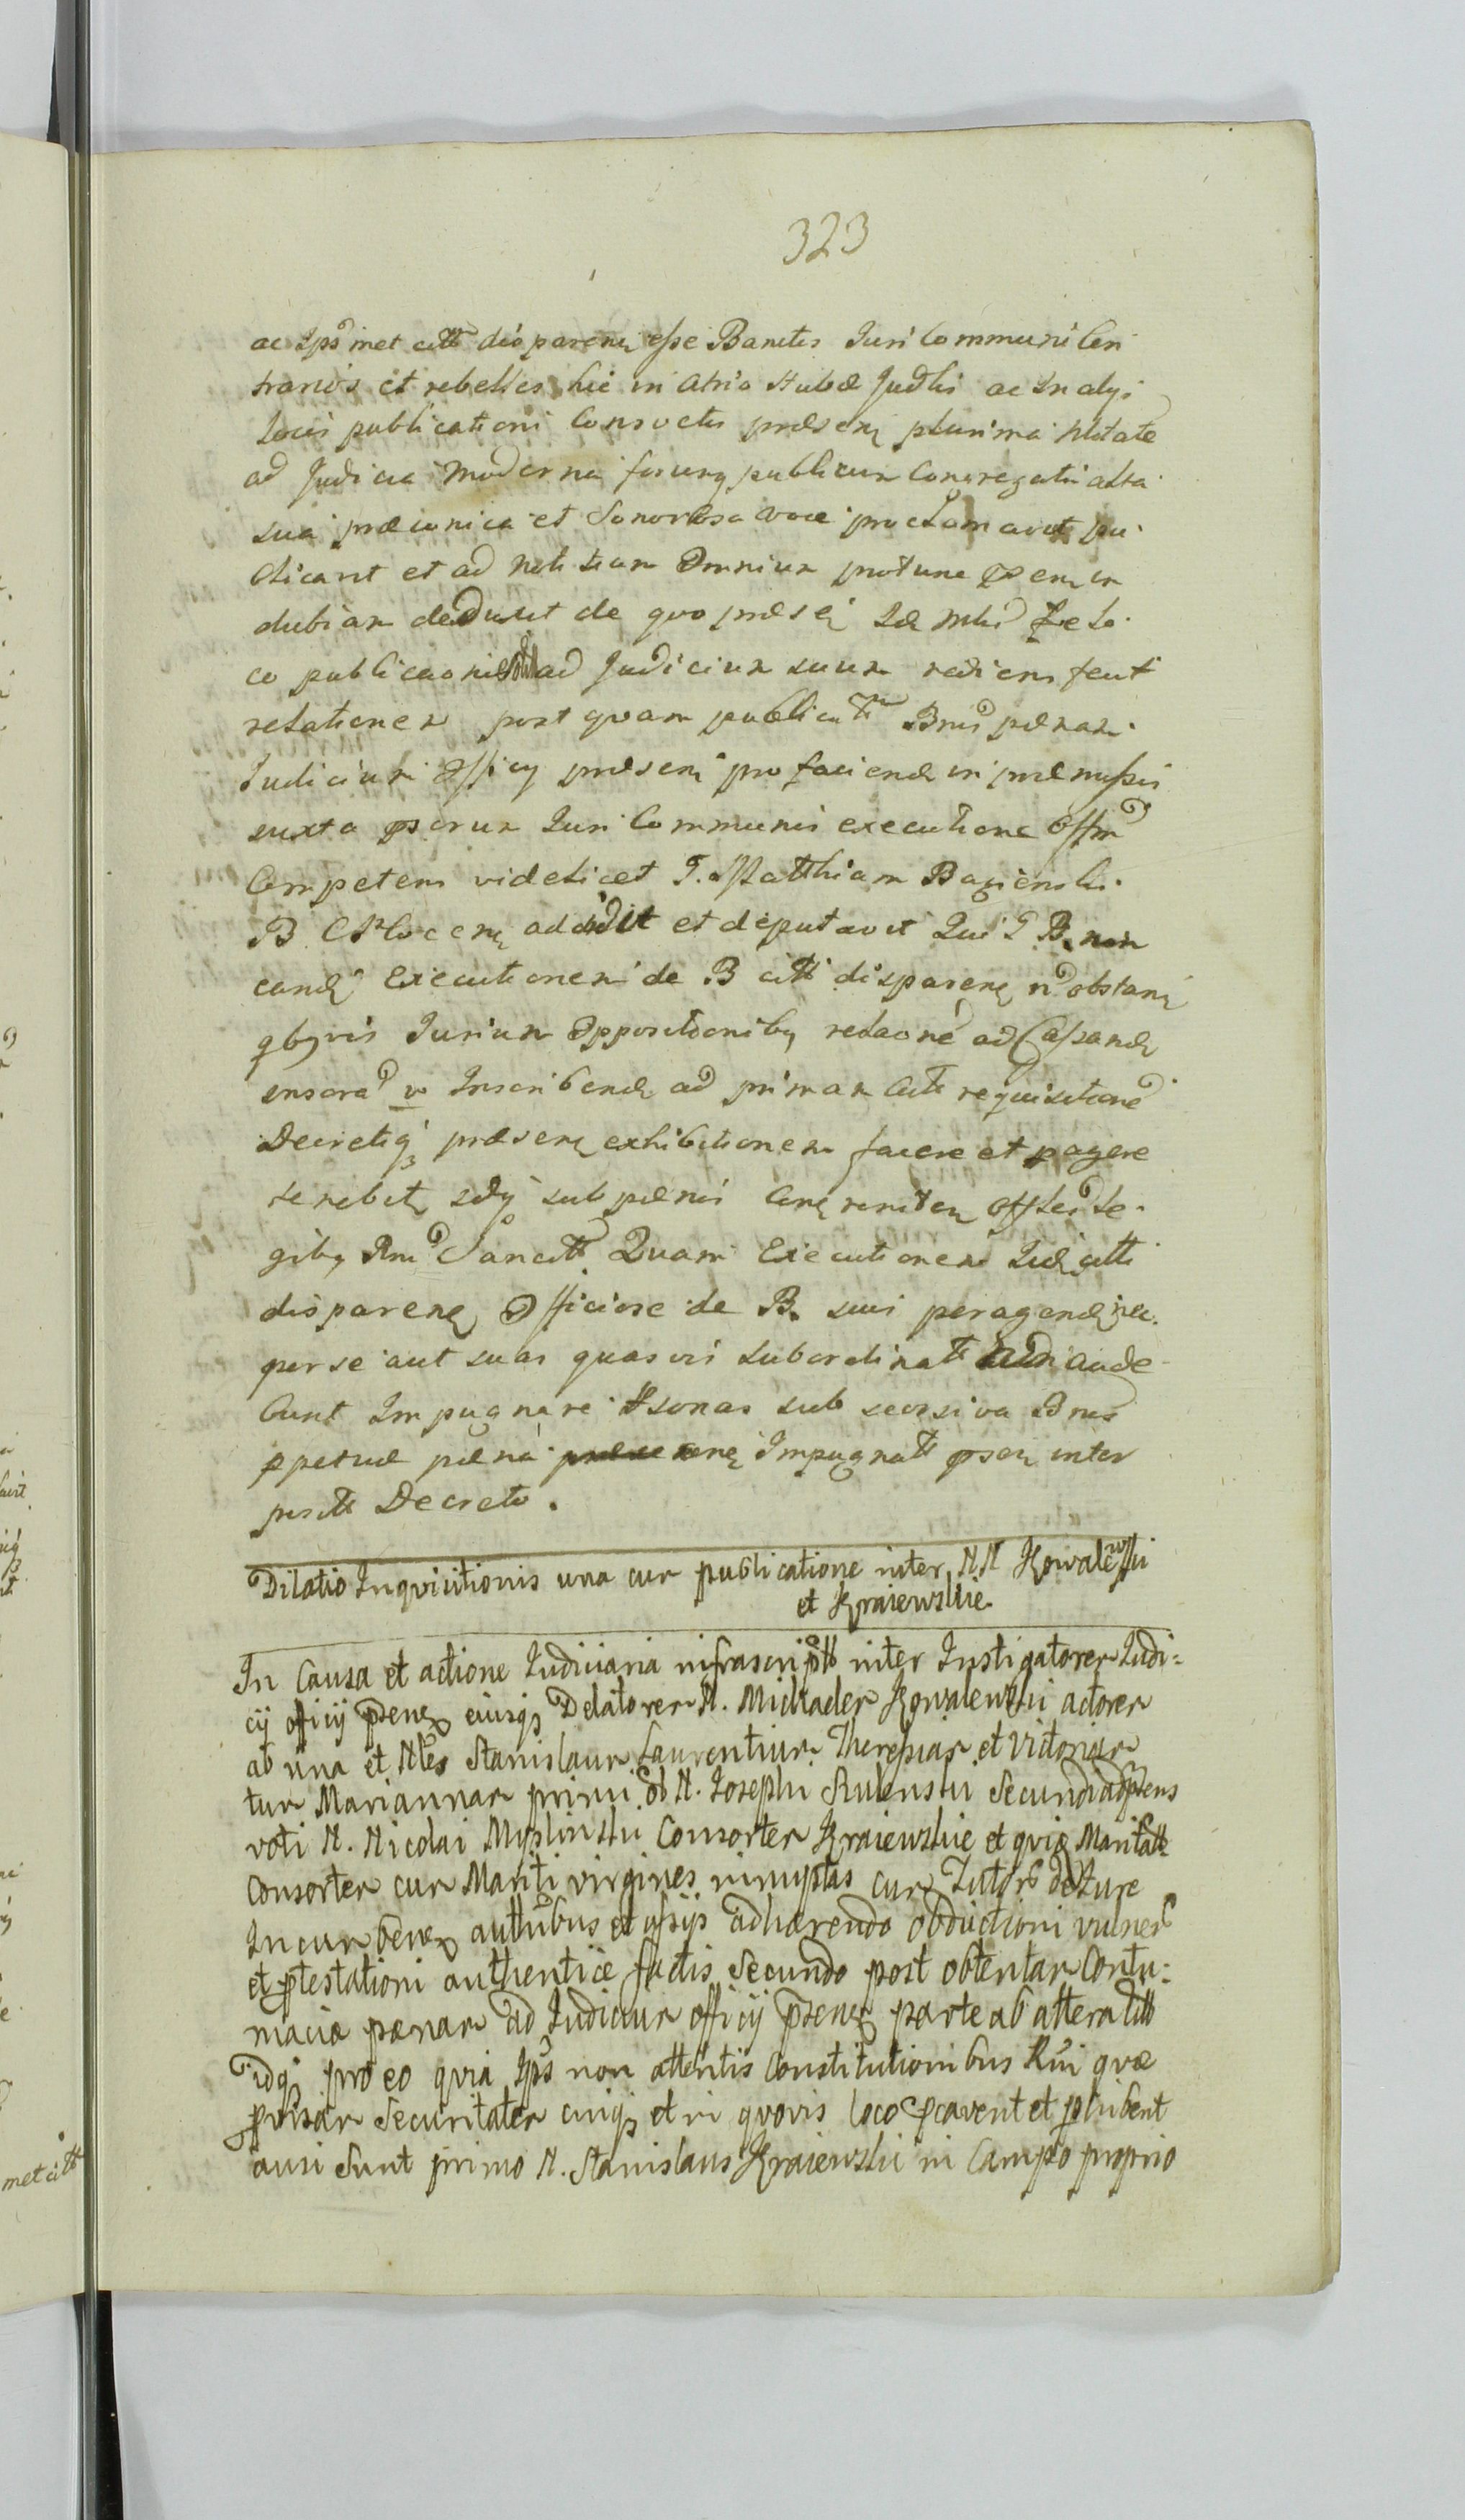 323
ac Ips met citt disparen esse Banitos Juri Communi Con
trarios et rebelles hic in atrio Stubæ Judlis ac In alys
Locis publicationi Consvetis præsen plurima Nbltate
ad Judicia moderna forumq publicum Congregati alta
sua præconica et Sonorosa voce proclamavit pu
blicavit et ad notitiam Omnium protunc
dubiam deduxit de quo præsen Idē Mlis de lo
co publicaonis ad Judicium suum rediens fecit
relationem post quam publicatt Bnis pænam
Judicium Officy præsen pro faciend in præmissis
iuxta Juri Communis executione Offm
Competens videlicet G. Matthiam Bagienski
B. addidit et deputavit Qui G B. non
cand Executionem de B citt disparen n obstan
qbusvis Jurium Oppositionibus relaone ad Cassand
Inscribend ad primam Actt requisitione
Decretiq præsen exhibitionem facere et pagere
tenebit idq sub pænis Contraveniten Offlis Le
gibus Rni Sancitt Quam Executionem Idē citti
disparen Officiose de B. sui peragend nec
per se aut suas quasvis subordinatt aude
bunt Impugnare psonas sub seorsiva Bnis
ppetuæ pæna Impugnatt psen inter
positt Decreto.
Dilatio Inqvisitionis una cum publicatione inter N.N Kowalewski
et Kraiewskie
In Causa et actione Iudiciaria infrascriptt inter Instigatorem Iudi=
cij officij psenq eiusq Delatorem N. Michaelem Kowalewski actorem
ab una et Nles Stanislaum Laurentium Theressiam et Victoriam
tum Mariannam primi ol N. Iosephi Rulenski Secundi adpsens
voti N. Nicolai Myslinski Consortem Kraiewskie et qvia Maritatt
Consortem cum Mariti virgines innuptas cum Tutore de Iure
Incumben auttibus et ussys adhærendo obductioni vulner
et ptestationi authentice factis Secundo post obtentam Contu=
maciæ pænam ad Iudicium officij psenq parte ab altera Citt
idq pro eo qvia Ips non attentis Constitutionibus Rni qvæ
pvisam Securitatem cuiq et in qvovis loco pcavent et phibent
ausi Sunt primo N. Stanislaus Kraiewski in Campo proprio
met citt